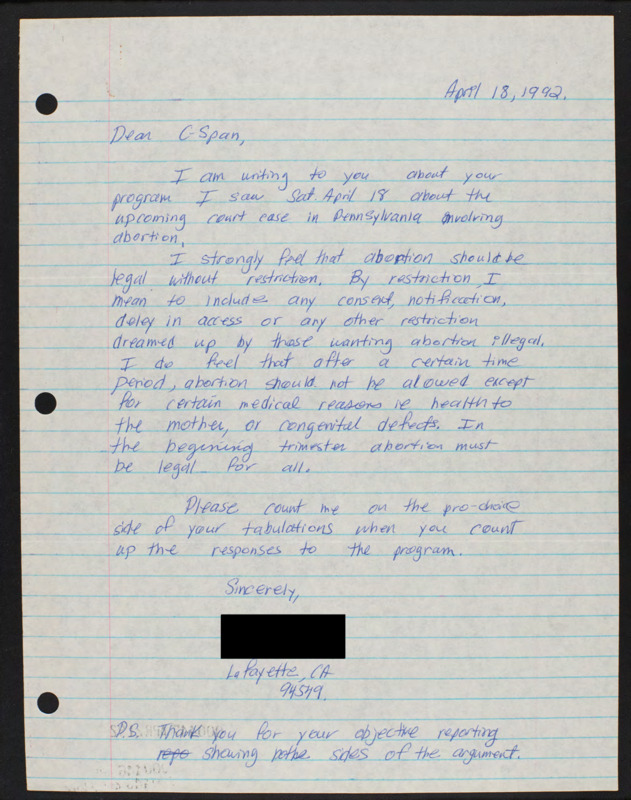 April 18, 1992.
Dear C-Span,
I am writing to you about your
program I saw Sat. April 18 about the
upcoming court case in Pennsylvania involving
abortion.
I strongly feel that abortion should be
legal without restriction. By restriction, I
mean to include any consent, notification,
delay in access or any other restriction
dreamed up by those wanting abortion illegal.
I do feel that after a certain time
period, abortion should not be allowed except
for certain medical reasons ie health to
the mother, or congenital defects. In
the begening trimester abortion must
be legal for all.
Please count me on the pro-choice
side of your tabulations when you count
up the responses to the program.
Sincerely,
Lafayette, CA
94549.
P.S. Thank you for your objective reporting
repo showing bothe sides of the argument.